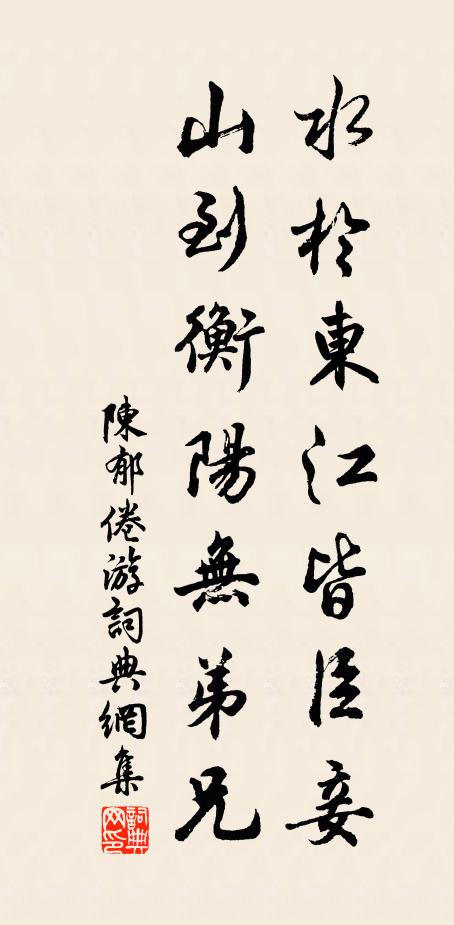 水於東江皆臣妾
山到衡陽無弟兄
陳郁倦游詞典網集
詞典
网印